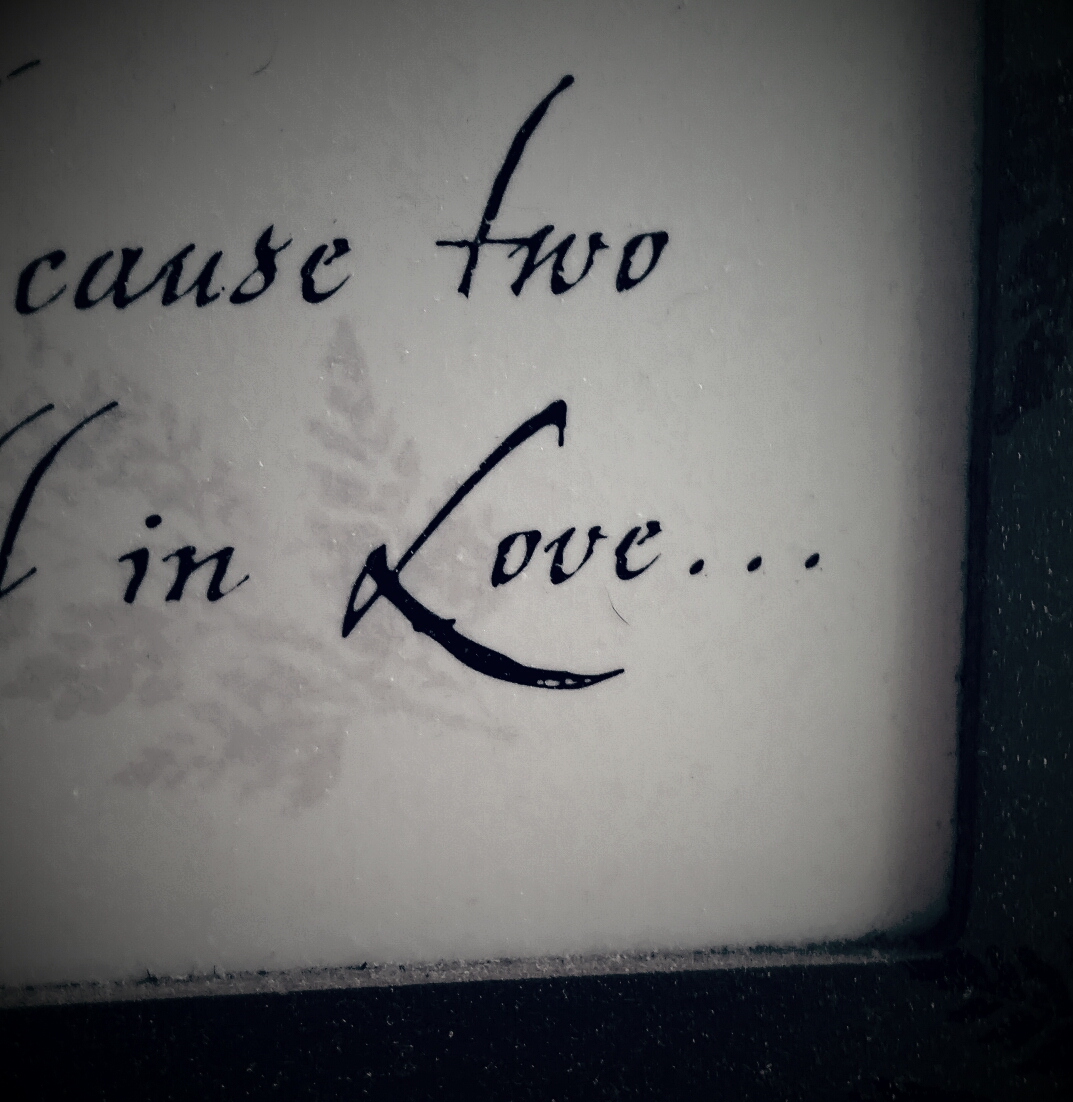 cause two
in Love...